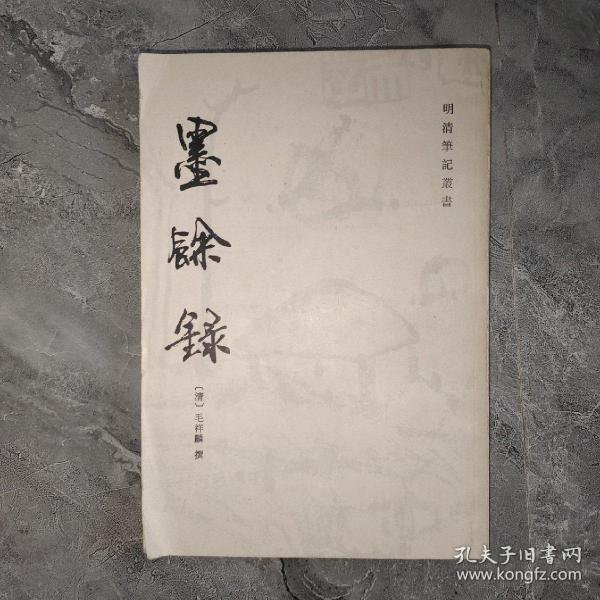 明清筆記叢書
墨餘録
〔清〕毛祥麟 撰
孔夫子旧書网
www.kongfz.com